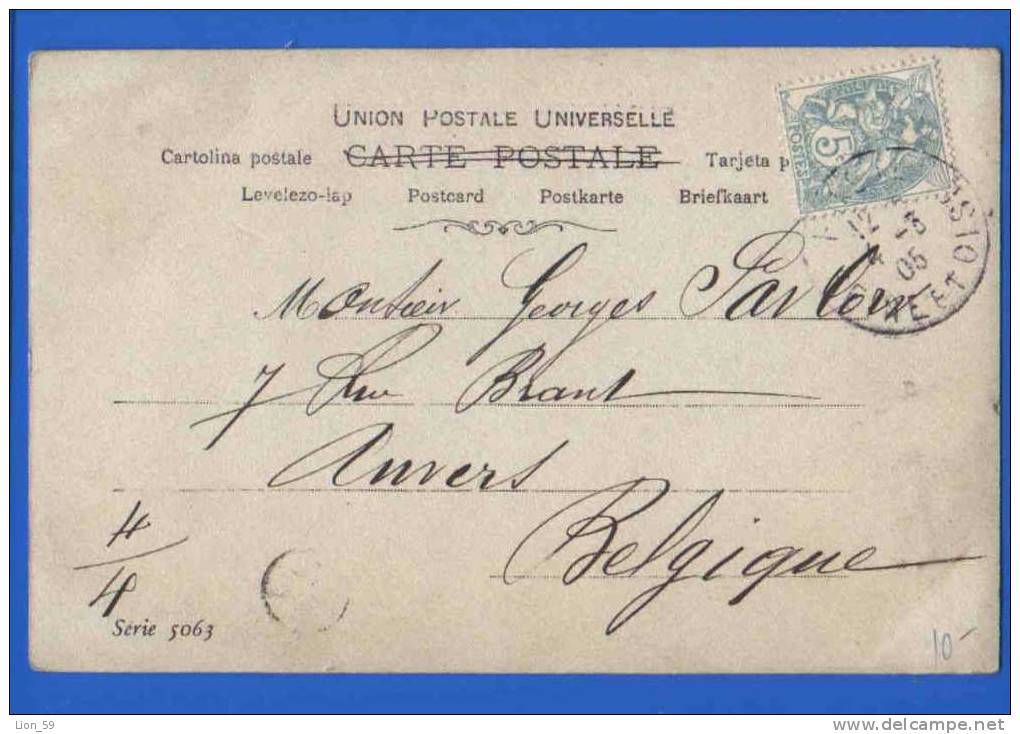 UNION POSTALE UNIVERSELLE
Cartolina postale CARTE POSTALE Tarjeta p
Levelezo-lap Postcard Postkarte Briefkaart
5c
POSTES
12
05
Monsieur Georges
7 Rue Brant
Anvers
Belgique
4/4
Série 5063
10-
Lion_59
www.delcampe.net